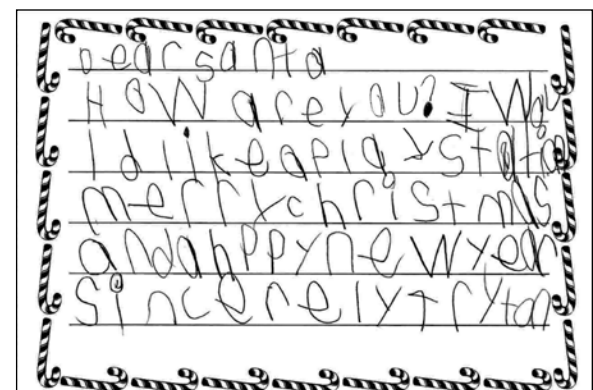 Dear santa
HOW are you? I Wou
ld like a play stato
merry christmas
and a happy new year
sincerely trytan